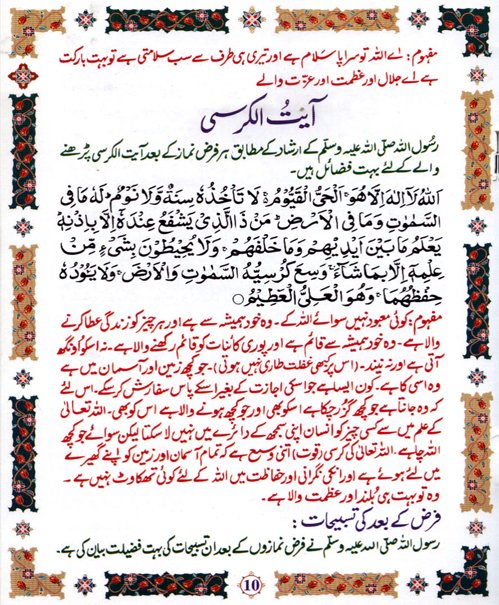 مفہوم: اے اللہ تو سراپا سلام ہے اور تیری ہی طرف سے سب سلامتی ہے تو بہت بارکت
ہے اے جلال اور عظمت اور عزت والے
آیتُ الکرسی
رسُول اللہ صلی اللہ علیہ وسلم کے ارشاد کے مطابق ہر فرض نماز کے بعد آیت الکرسی پڑھنے
والے کے لئے بہت فضائل ہیں۔
اَللهُ لَآ اِلٰهَ اِلَّا هُوَ ۚ اَلْحَىُّ الْقَيُّوْمُ ۚ لَا تَاْخُذُهٗ سِنَةٌ وَّلَا نَوْمٌ ؕ لَهٗ مَا فِى
السَّمٰوٰتِ وَمَا فِى الْاَرْضِ ؕ مَنْ ذَا الَّذِىْ يَشْفَعُ عِنْدَهٗٓ اِلَّا بِاِذْنِهٖ ؕ
يَعْلَمُ مَا بَيْنَ اَيْدِيْهِمْ وَمَا خَلْفَهُمْ ۚ وَلَا يُحِيْطُوْنَ بِشَىْءٍ مِّنْ
عِلْمِهٖٓ اِلَّا بِمَا شَآءَ ۚ وَسِعَ كُرْسِيُّهُ السَّمٰوٰتِ وَالْاَرْضَ ۚ وَلَا يَئُوْدُهٗ
حِفْظُهُمَا ۚ وَهُوَ الْعَلِىُّ الْعَظِيْمُ ○
مفہوم: کوئی معبود نہیں سوائے اللہ کے۔ وہ خود ہمیشہ سے ہے اور ہر چیز کو زندگی عطا کرنے
والا ہے۔ وہ خود ہمیشہ سے قائم ہے اور پوری کائنات کو قائم رکھنے والا ہے۔ نہ اسکو اونگھ
آتی ہے اور نہ نیند۔ (اس پر کبھی غفلت طاری نہیں ہوتی)۔ جو کچھ زمین اور آسمان میں ہے
وہ اسی کا ہے۔ کون ایسا ہے جو اسکی اجازت کے بغیر اسکے پاس سفارش کر سکے۔ اس لئے
کہ وہ جانتا ہے جو کچھ گزر چکا ہے اسکو بھی اور جو کچھ ہونے والا ہے اس کو بھی۔ اللہ تعالیٰ
کے علم میں سے کسی چیز کو انسان اپنی سمجھ کے دائرے میں نہیں لا سکتا لیکن سوائے جو کچھ
اللہ چاہے۔ اللہ تعالیٰ کی کرسی (قوت) اتنی وسیع ہے کہ تمام آسمان اور زمین کو اپنے گھیرے
میں لئے ہوئے ہے اور انکی نگرانی اور حفاظت میں اللہ کے لئے کوئی تھکاوٹ نہیں ہے۔
وہ تو بہت ہی بُلند اور عظمت والا ہے۔
فرض کے بعد کی تسبیحات:
رسول اللہ صلی اللہ علیہ وسلم نے فرض نمازوں کے بعد ان تسبیحات کی بہت فضیلت بیان کی ہے۔
10